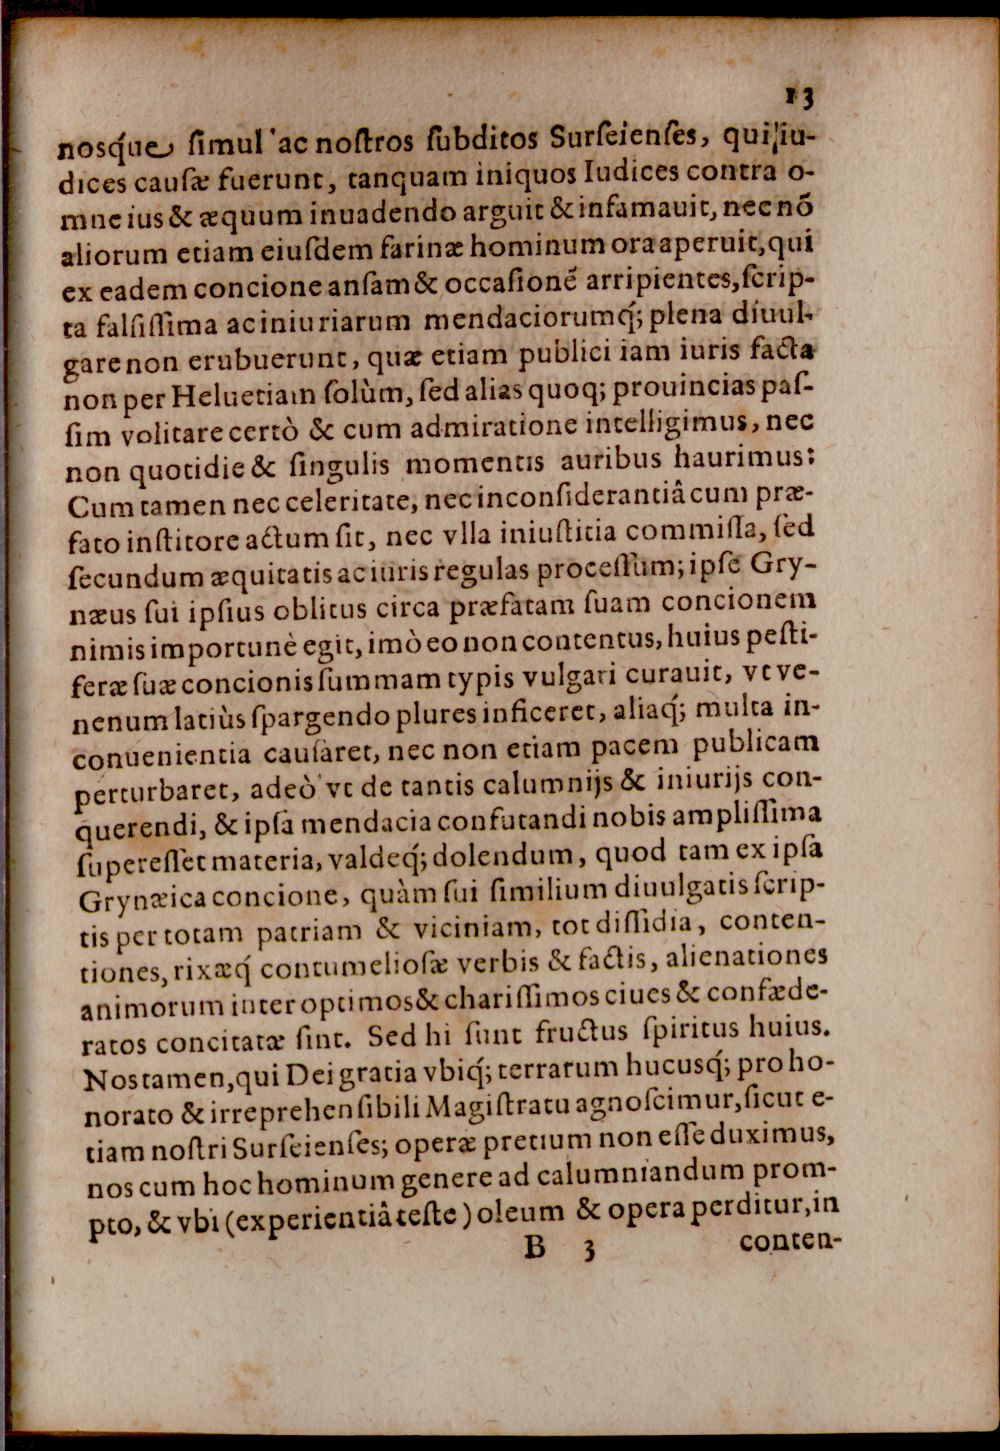 13
nosq́ue ſimul ac noſtros ſubditos Surſeienſes, qui iu-
dices cauſæ fuerunt, tanquam iniquos Iudices contra o-
mne ius & æquum inuadendo arguit & infamauit, nec nõ
aliorum etiam eiuſdem farinæ hominum ora aperuit, qui
ex eadem concione anſam & occaſionẽ arripientes, ſcrip-
ta falſiſſima ac iniuriarum mendaciorumq́; plena diuul-
gare non erubuerunt, quæ etiam publici iam iuris facta
non per Heluetiam ſolùm, ſed alias quoq; prouincias paſ-
ſim volitare certò & cum admiratione intelligimus, nec
non quotidie & ſingulis momentis auribus haurimus:
Cum tamen nec celeritate, nec inconſiderantiâ cum præ-
fato inſtitore actum ſit, nec vlla iniuſtitia commiſſa, ſed
ſecundum æquitatis ac iuris regulas proceſſum; ipſe Gry-
næus ſui ipſius oblitus circa præfatam ſuam concionem
nimis importunè egit, imò eo non contentus, huius peſti-
feræ ſuæ concionis ſummam typis vulgari curauit, vt ve-
nenum latiùs ſpargendo plures inficeret, aliaq́; multa in-
conuenientia cauſaret, nec non etiam pacem publicam
perturbaret, adeò vt de tantis calumnijs & iniurijs con-
querendi, & ipſa mendacia confutandi nobis ampliſſima
ſupereſſet materia, valdeq́; dolendum, quod tam ex ipſa
Grynæica concione, quàm ſui ſimilium diuulgatis ſcrip-
tis per totam patriam & viciniam, tot diſſidia, conten-
tiones, rixæq́ contumelioſæ verbis & factis, alienationes
animorum inter optimos & chariſſimos ciues & confæde-
ratos concitatæ ſint. Sed hi ſunt fructus ſpiritus huius.
Nos tamen, qui Dei gratia vbiq́; terrarum hucusq́; pro ho-
norato & irreprehenſibili Magiſtratu agnoſcimur, ſicut e-
tiam noſtri Surſeienſes; operæ pretium non eſſe duximus,
nos cum hoc hominum genere ad calumniandum prom-
pto, & vbi (experientiâ teſte) oleum & opera perditur, in
B 3 conten-